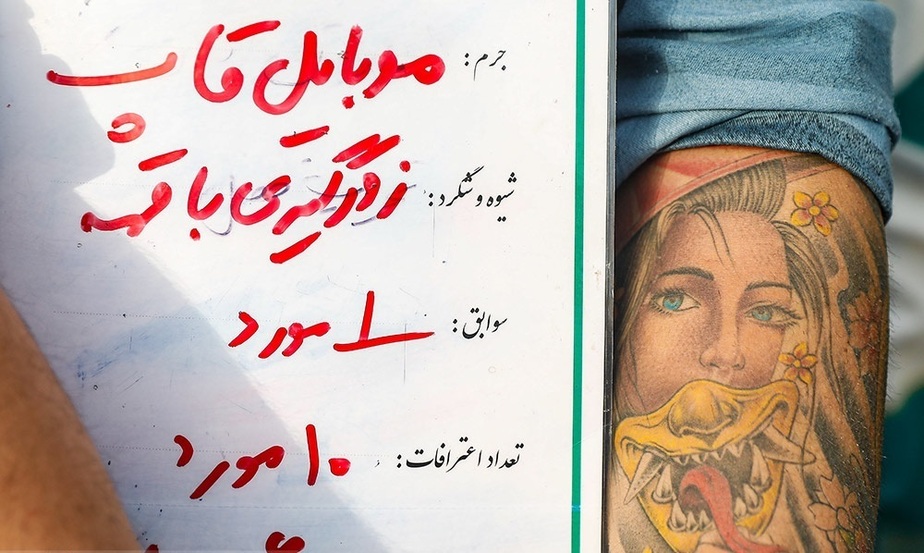 جرم: موبایل قاپ
شیوه و شگرد: زورگیری با قمه
سوابق: ۱ مورد
تعداد اعترافات: ۱۰ مورد